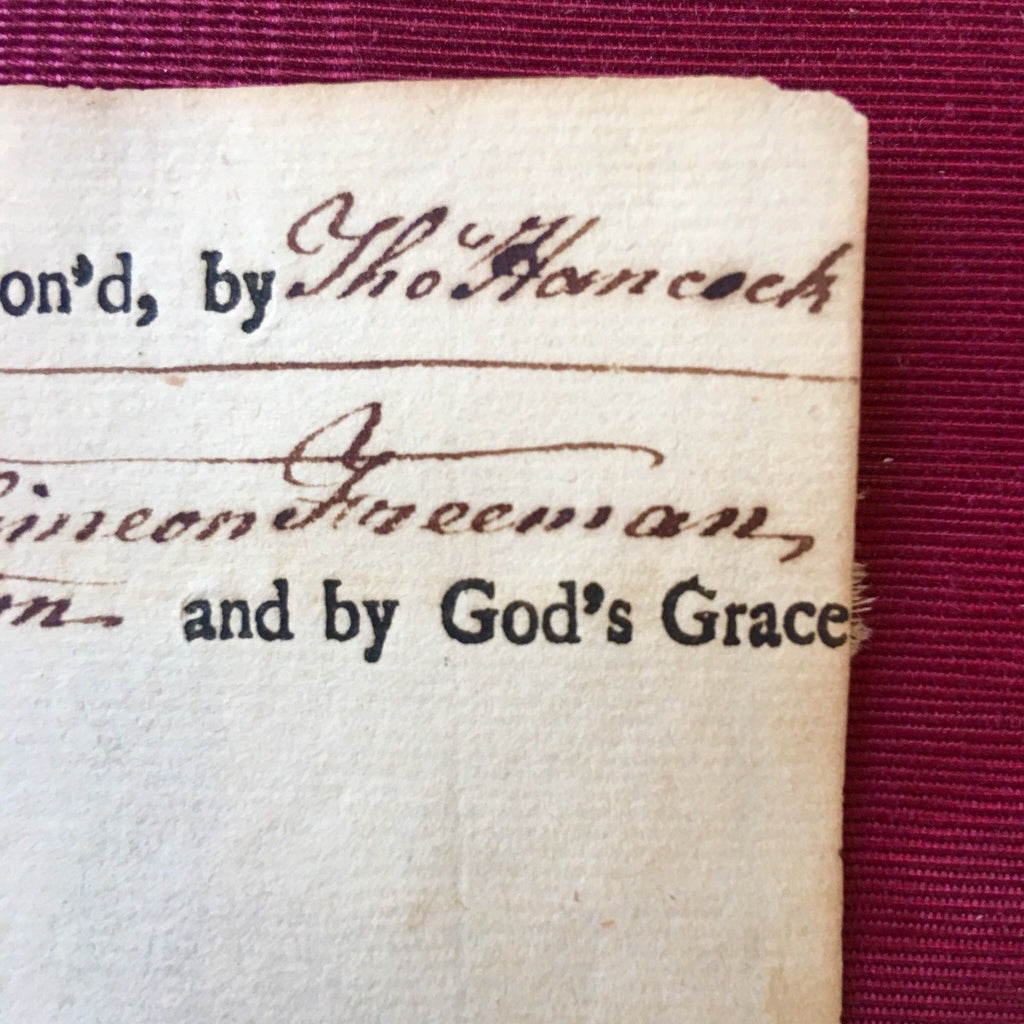 on'd, by Tho^s Hancock
Simeon Freeman,
and by God's Grace